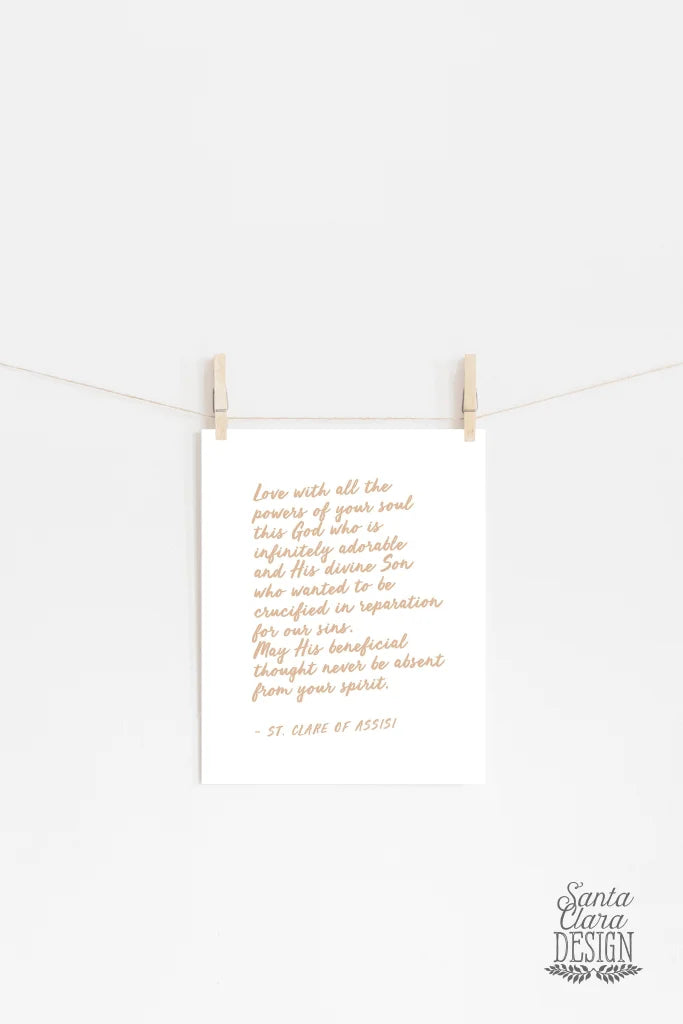 Love with all the
powers of your soul
this God who is
infinitely adorable
and His divine Son
who wanted to be
crucified in reparation
for our sins.
May His beneficial
thought never be absent
from your spirit.
- ST. CLARE OF ASSISI
Santa
Clara
DESIGN